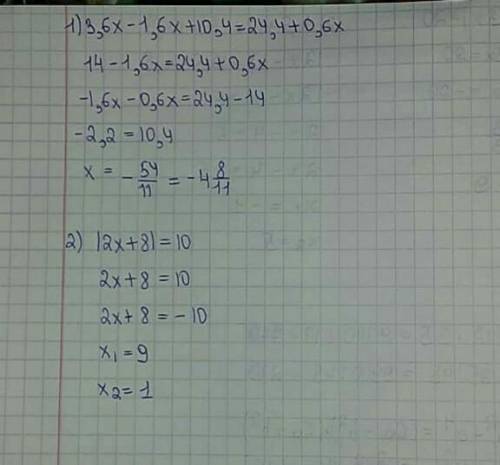 1) 3,6x - 1,6x + 10,4 = 24,4 + 0,6x
14 - 1,6x = 24,4 + 0,6x
-1,6x - 0,6x = 24,4 - 14
-2,2 = 10,4
x = - 54/11 = -4 8/11
2) |2x + 8| = 10
2x + 8 = 10
2x + 8 = - 10
x₁ = 9
x₂ = 1